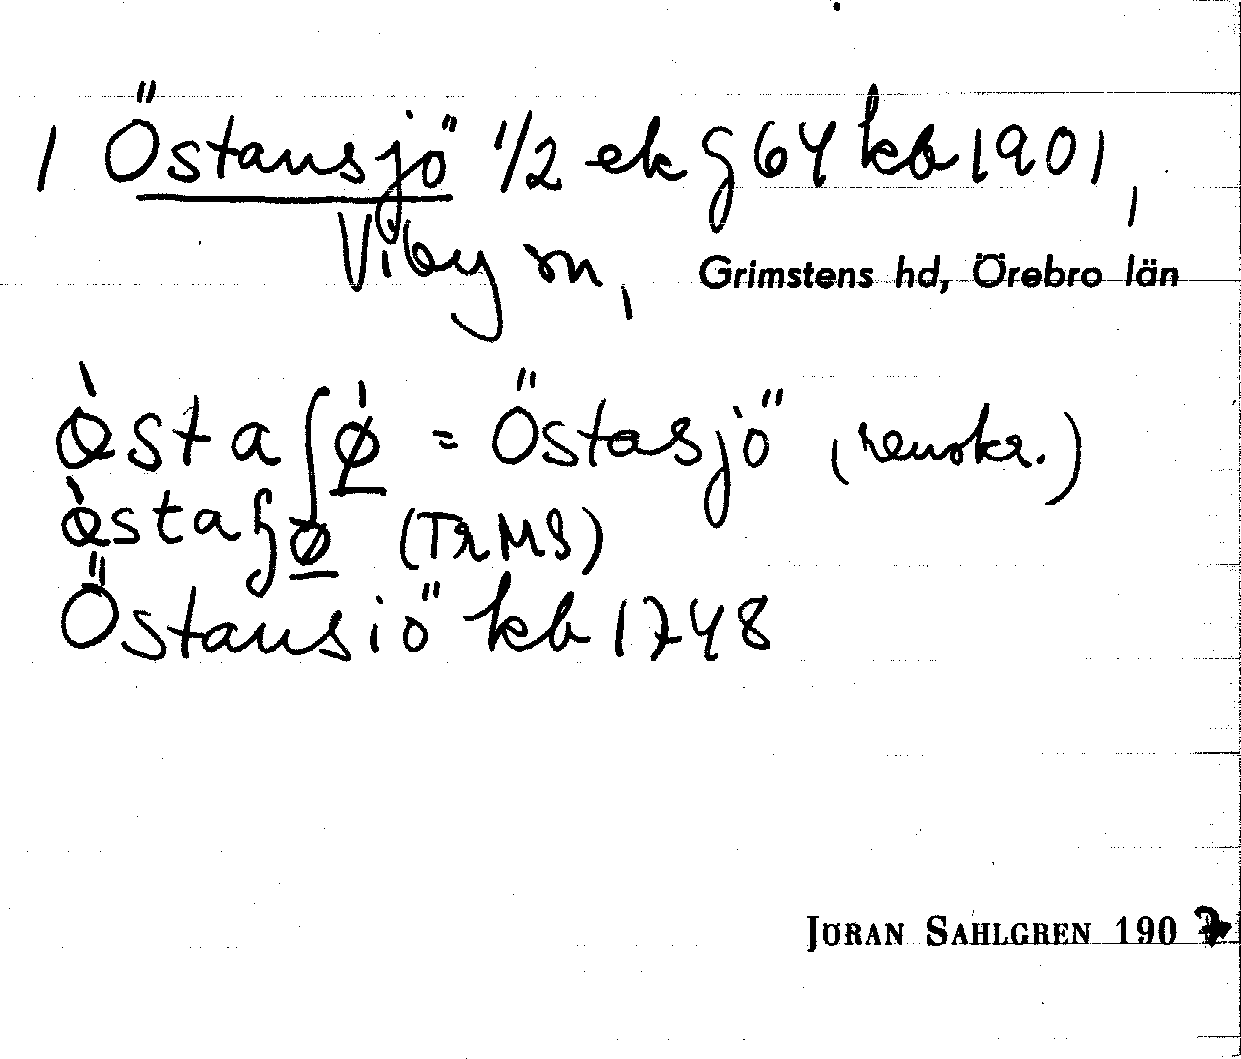 1 Östansjö 1/2 ek g 64 kb 1901,
Viby sn, Grimstens hd, Örebro län
östaʃø = Östasjö (renskr.)
(TRMS)
Östansiö kb 1748
JÖRAN SAHLGREN 1907